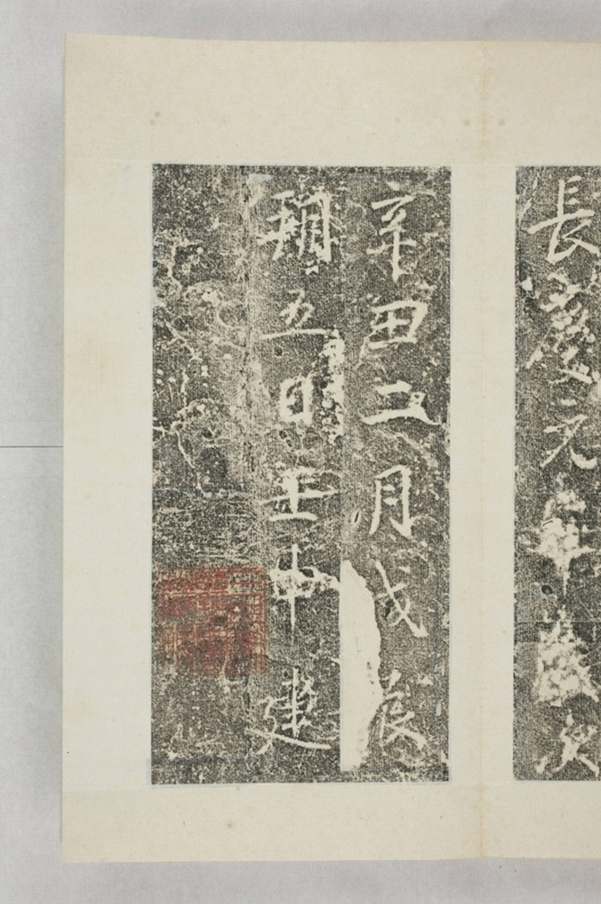 長慶元年歲次
辛丑二月戊辰
朔五日壬申建